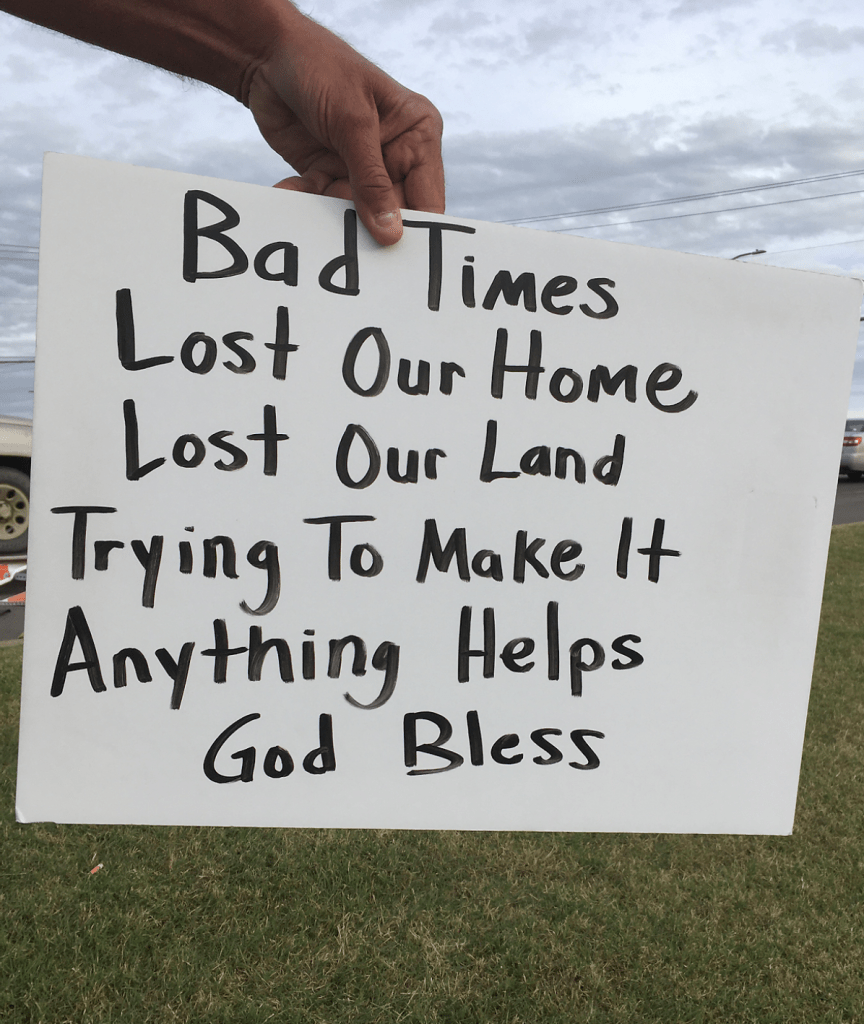 Bad Times
Lost Our Home
Lost Our Land
Trying To Make It
Anything Helps
God Bless